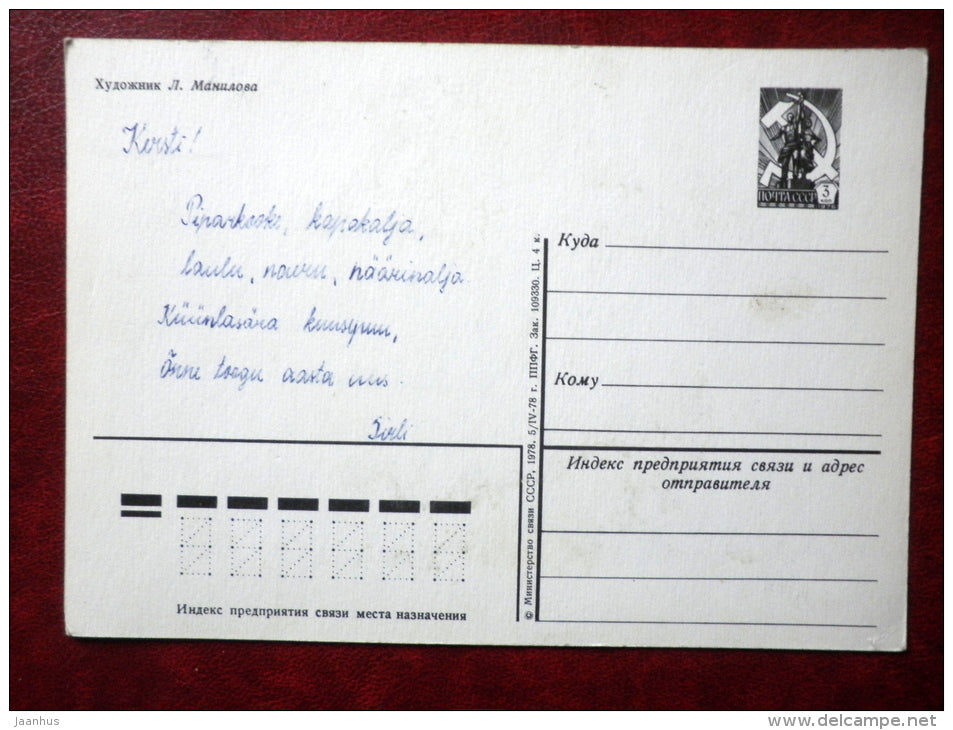 Художник Л. Манилова
Kersti!
Piparkooke, kapakalja,
laulu, nauru, näärinalja
Küünlasära kuusepuu,
Õnne toogu aasta uus.
Sirli
ПОЧТА СССР
3
КОП
1976
Куда
Кому
Индекс предприятия связи и адрес
отправителя
© Министерство связи СССР, 1978. 5/IV-78 г. ППФГ. Зак. 109330. Ц. 4 к.
Индекс предприятия связи места назначения
jaanhus
www.delcampe.net